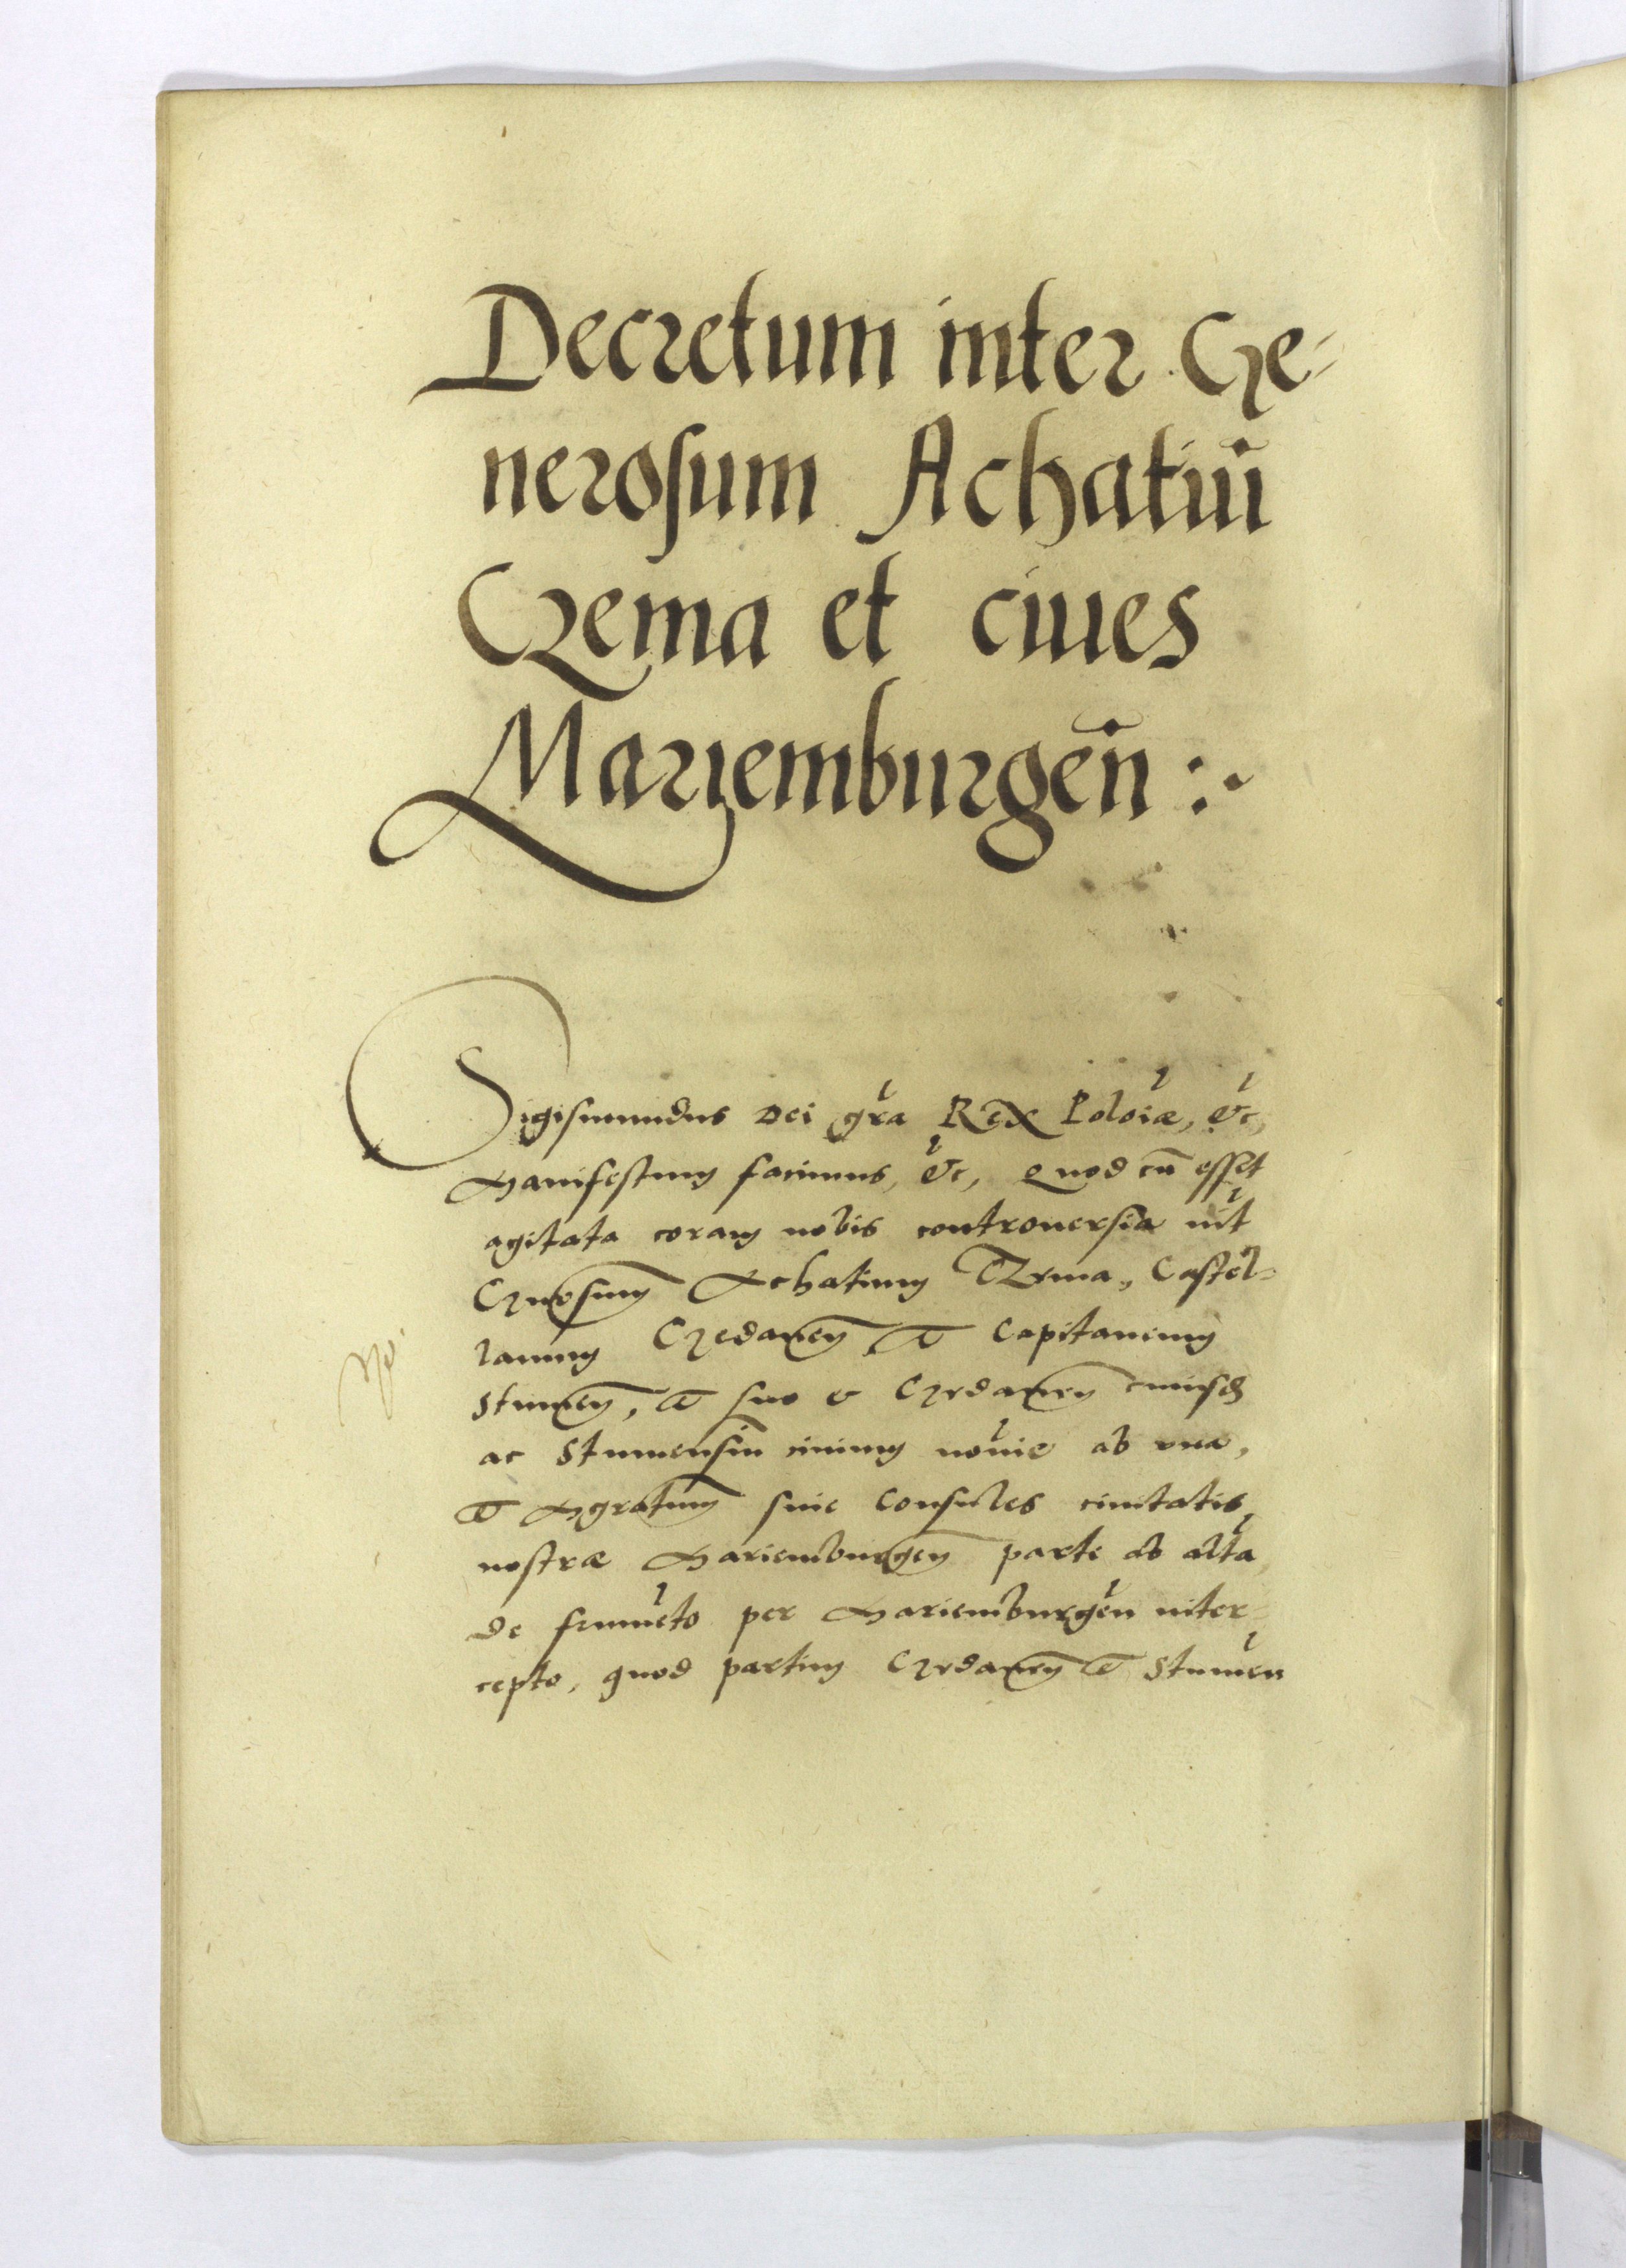 Decretum inter Ge-
nerosum Achatiū
Czema et ciues
Mariemburgeñ :~
Sigismundus Dei gr̃a Rex Polõiæ, &c,
Manifestum facimus, &c, Quod cũ esset
agitata coram nobis controuersia int̃
Gñosum Achatium Czema, Castel-
lanum Gedaneñ et Capitaneum
Stumeñ, et suo & Gedaneñ eiusd
ac Stumensiũ ciuium nõie ab vna,
et Mgratum siue Consules ciuitatis
nostræ Mariemburgeñ parte ab alt̃a
de frumẽto per Mariemburgeñ inter-
cepto, quod partim Gedaneñ et Stumeñ